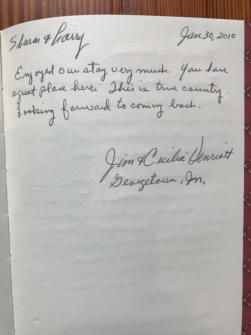 Sharon & Larry Jan 30, 2010
Enjoyed our stay very much. You have
a great place here. This is true country.
Looking forward to coming back.
Jim & Cecilia
Georgetown, In.